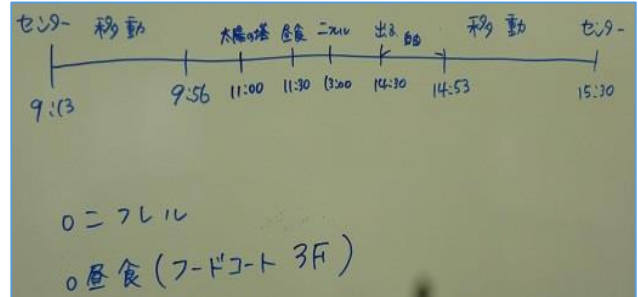 センター 移動 太陽の塔 昼食 ニフレル 出る 自由 移動 センター
9:13 9:56 11:00 11:30 13:00 14:30 14:53 15:30
○ニフレル
○昼食(フードコート 3F)